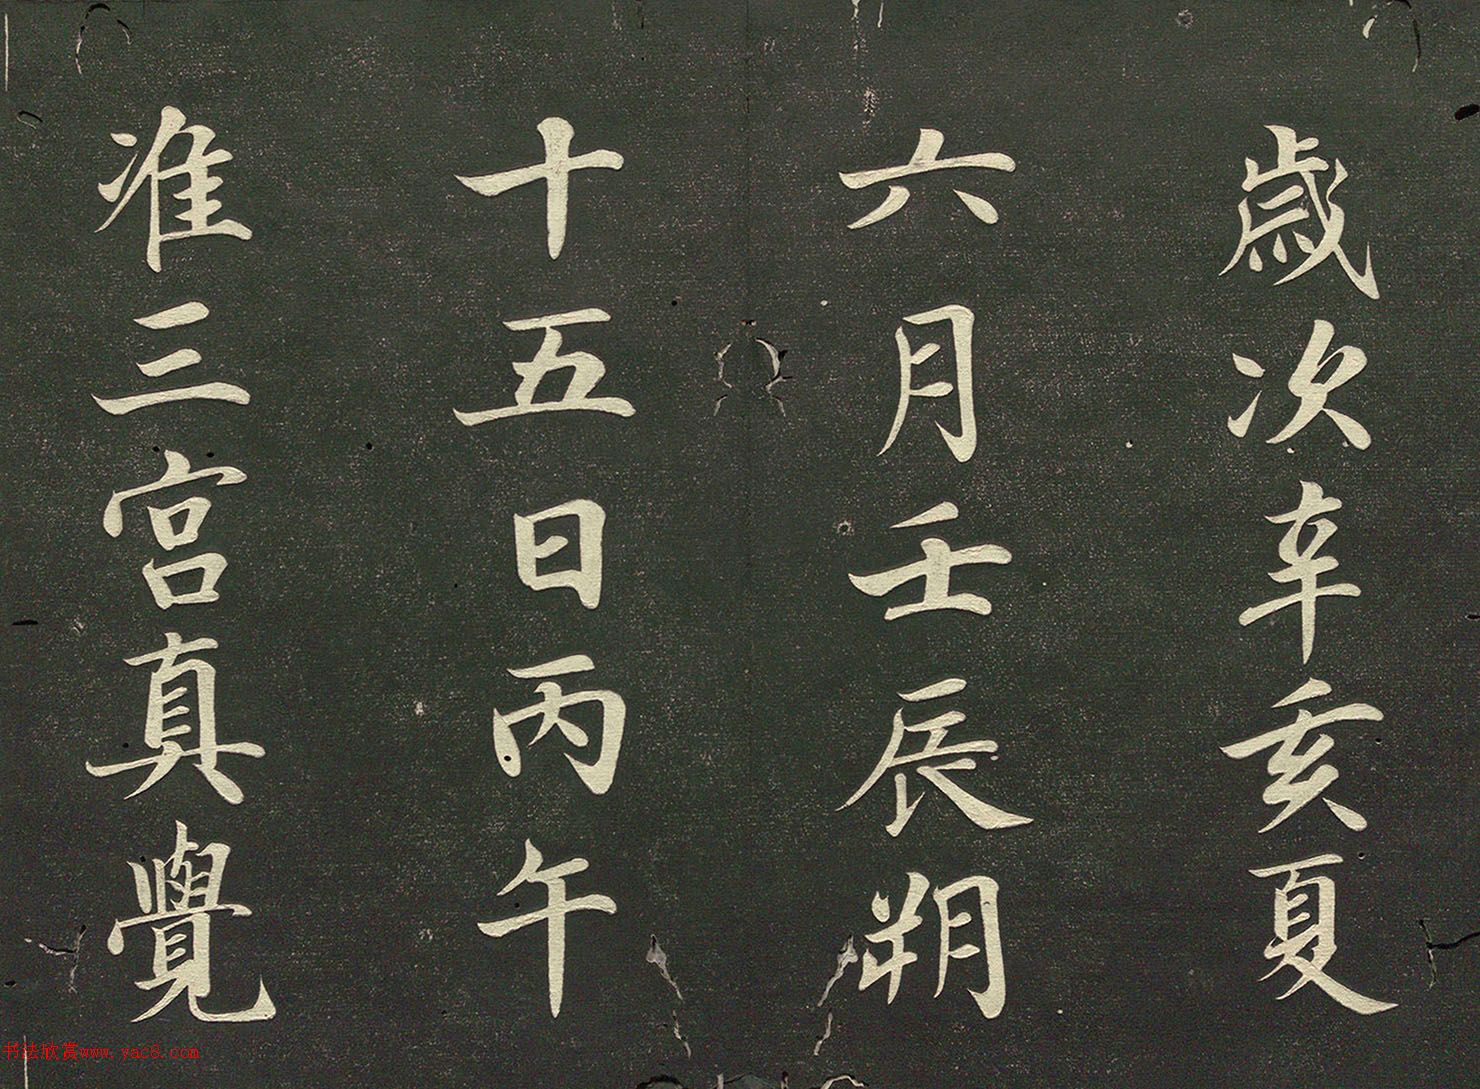 歲次辛亥夏
六月壬辰朔
十五日丙午
准三宮真覺
书法欣赏www.yac8.com